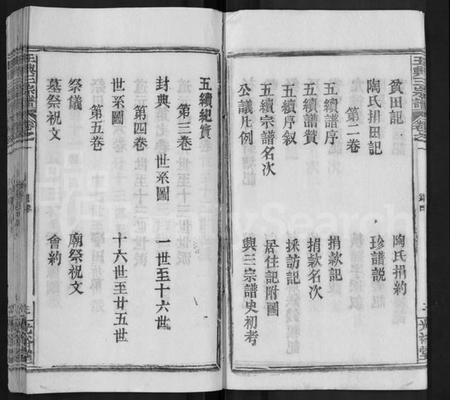 貧田記
陶氏捐約
陶氏捐田記
珍譜説
第二卷
五續譜序
捐款記
五續譜贊
捐款名次
五續序叙
採訪記
五續宗譜名次
居住記附圖
公議凡例
與三宗譜史初考
五續紀實
第三卷
封典
世系圖
一世至十六世
第四卷
世系圖
十六世至廿五世
第五卷
祭儀
廟祭祝文
墓祭祝文
會約